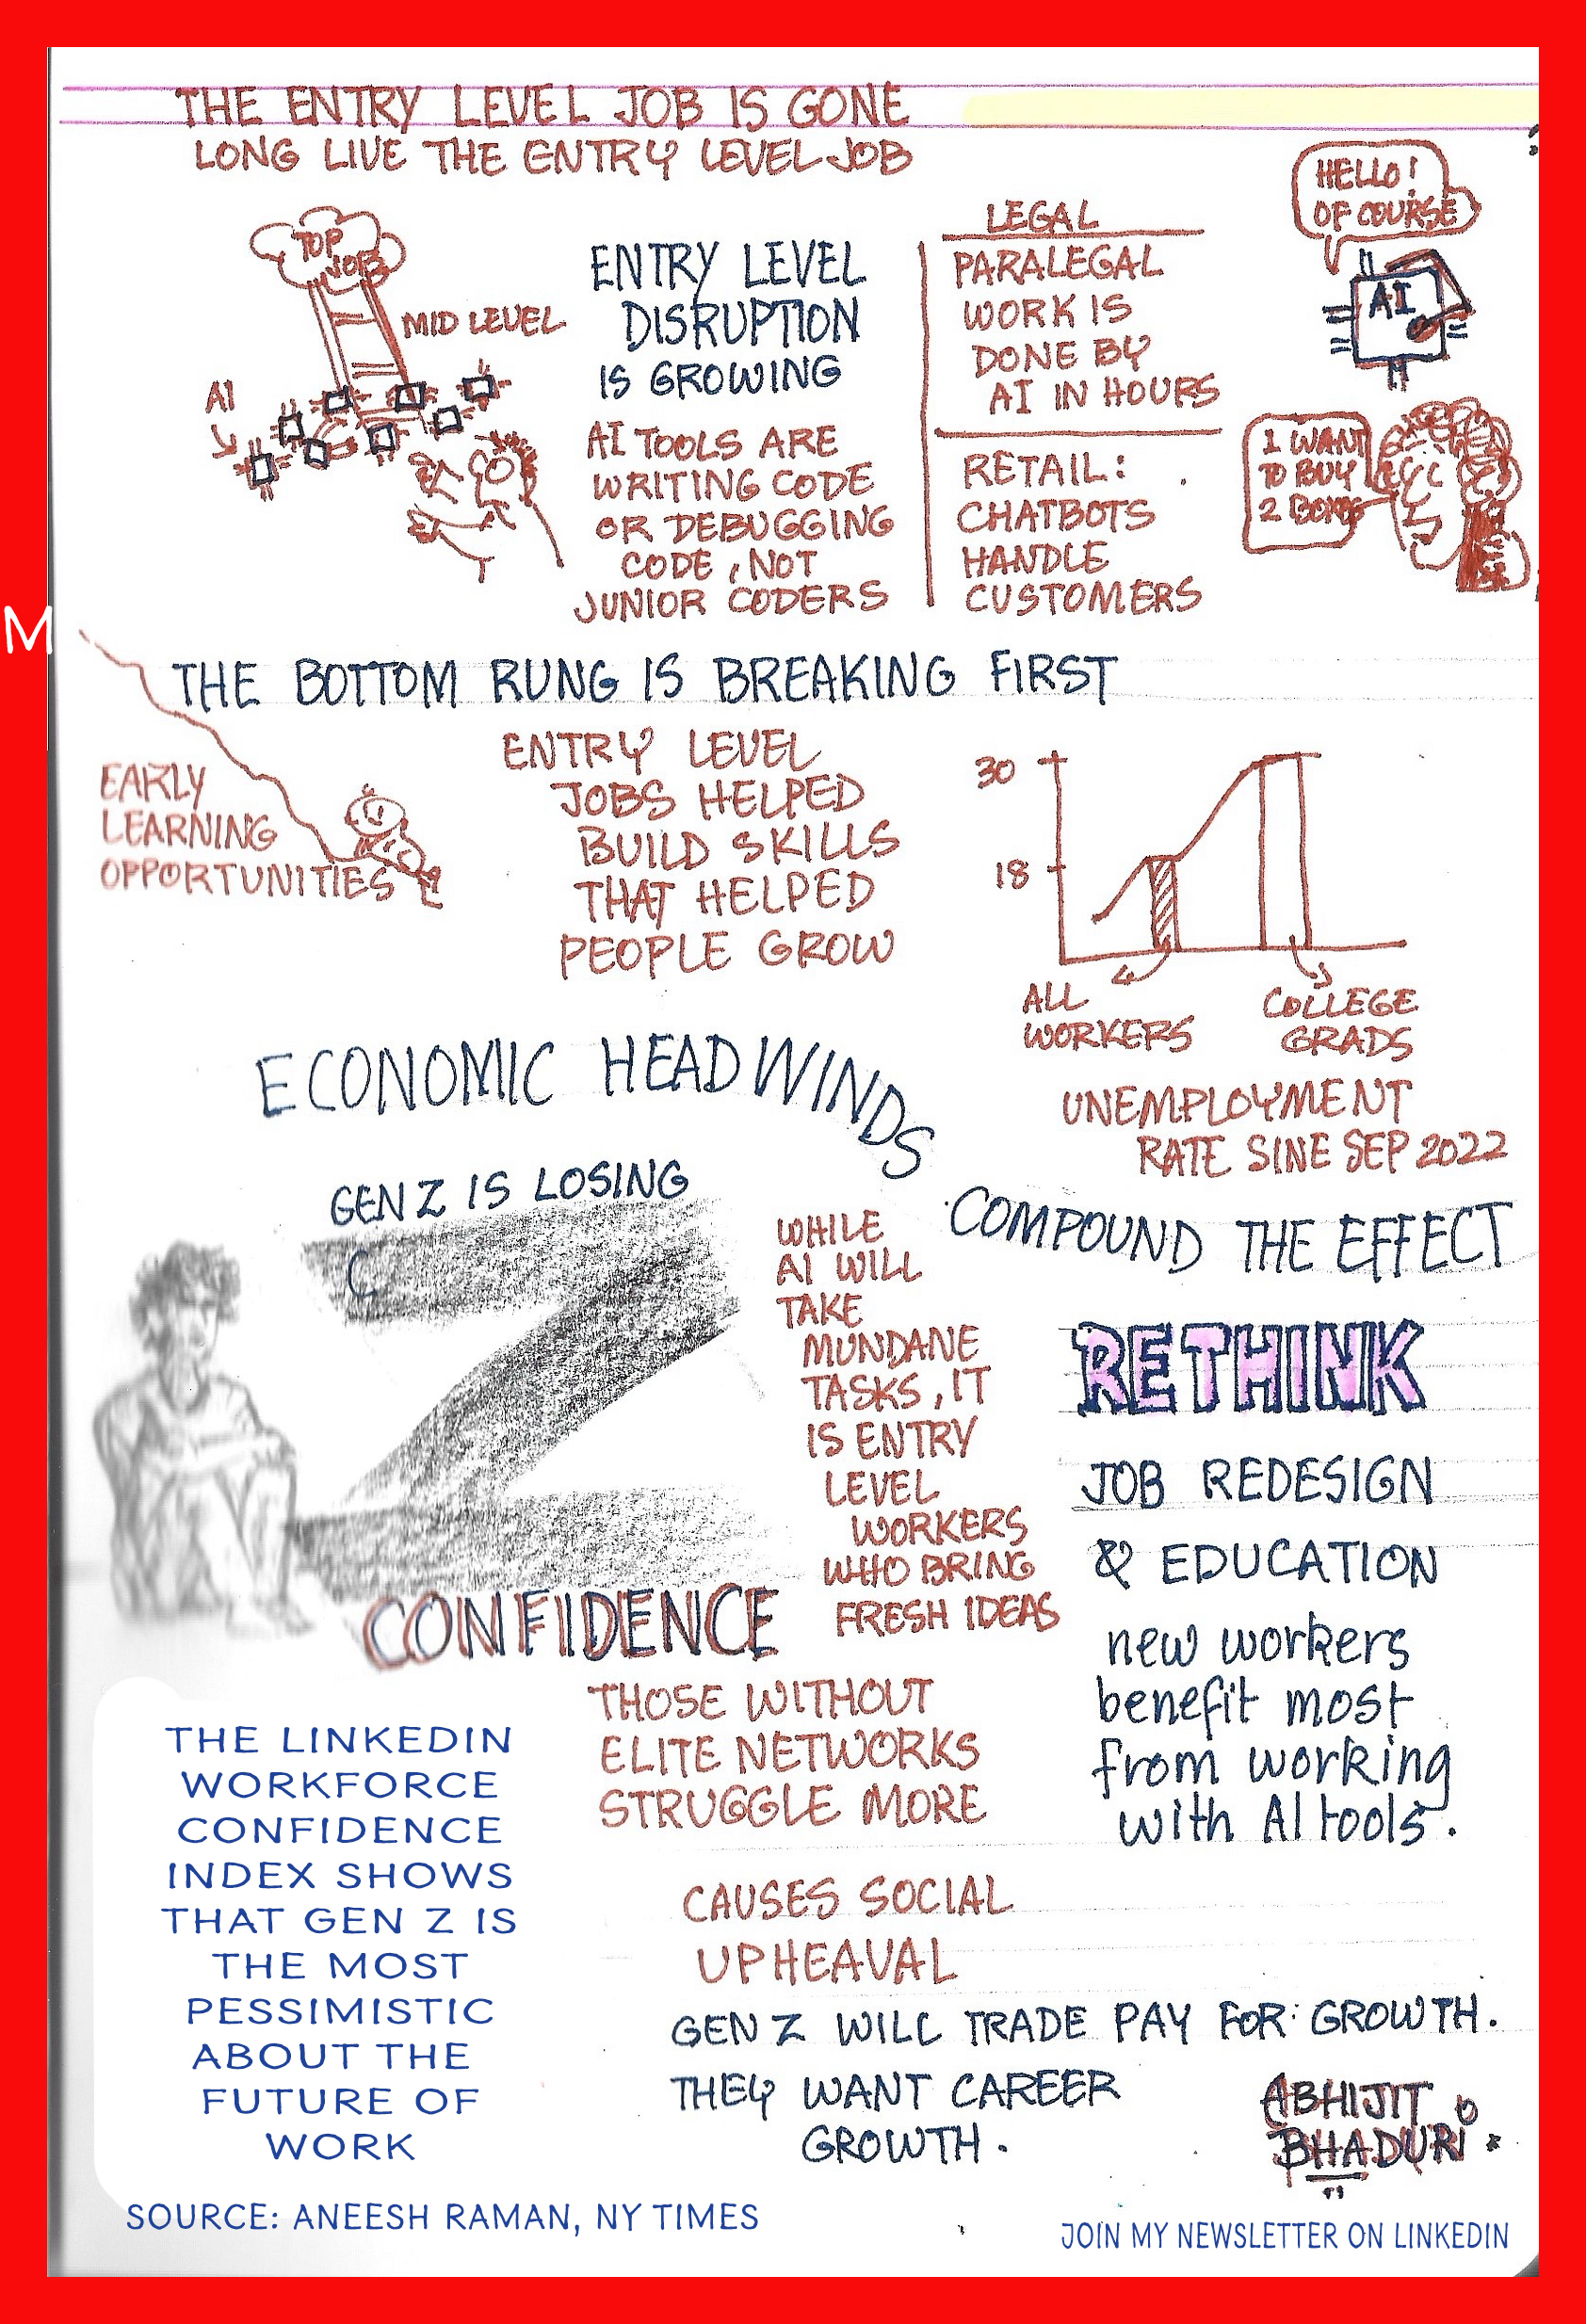 THE ENTRY LEVEL JOB IS GONE
LONG LIVE THE ENTRY LEVEL JOB
TOP
JOBS
MID LEVEL
AI
ENTRY LEVEL
DISRUPTION
IS GROWING
AI TOOLS ARE
WRITING CODE
OR DEBUGGING
CODE, NOT
JUNIOR CODERS
LEGAL
PARALEGAL
WORK IS
DONE BY
AI IN HOURS
RETAIL:
CHATBOTS
HANDLE
CUSTOMERS
HELLO!
OF COURSE
AI
I WANT
TO BUY
2
M
THE BOTTOM RUNG IS BREAKING FIRST
EARLY
LEARNING
OPPORTUNITIES
ENTRY LEVEL
JOBS HELPED
BUILD SKILLS
THAT HELPED
PEOPLE GROW
30
18
ALL
WORKERS
COLLEGE
GRADS
UNEMPLOYMENT
RATE SINE SEP 2022
ECONOMIC HEADWINDS
COMPOUND THE EFFECT
GEN Z IS LOSING
C
Z
CONFIDENCE
WHILE
AI WILL
TAKE
MUNDANE
TASKS, IT
IS ENTRY
LEVEL
WORKERS
WHO BRING
FRESH IDEAS
RETHINK
JOB REDESIGN
& EDUCATION
new workers
benefit most
from working
with AI tools.
THOSE WITHOUT
ELITE NETWORKS
STRUGGLE MORE
CAUSES SOCIAL
UPHEAVAL
GEN Z WILL TRADE PAY FOR GROWTH.
THEY WANT CAREER
GROWTH.
THE LINKEDIN
WORKFORCE
CONFIDENCE
INDEX SHOWS
THAT GEN Z IS
THE MOST
PESSIMISTIC
ABOUT THE
FUTURE OF
WORK
ABHIJIT
BHADURI
SOURCE: ANEESH RAMAN, NY TIMES
JOIN MY NEWSLETTER ON LINKEDIN